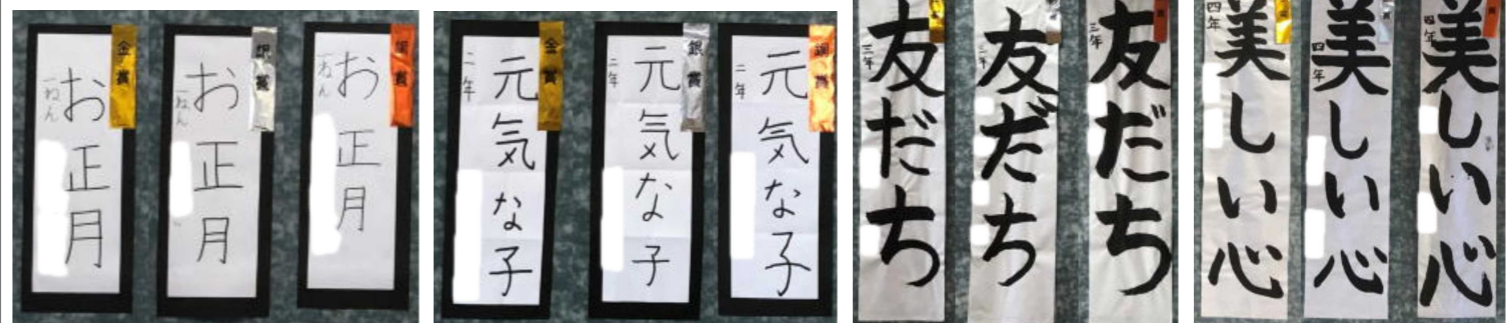 金賞
お正月
一ねん
銀賞
お正月
一ねん
銅賞
お正月
一ねん
金賞
元気な子
二年
銀賞
元気な子
二年
銅賞
元気な子
二年
友だち
三年
友だち
三年
友だち
三年
美しい心
四年
美しい心
四年
美しい心
四年